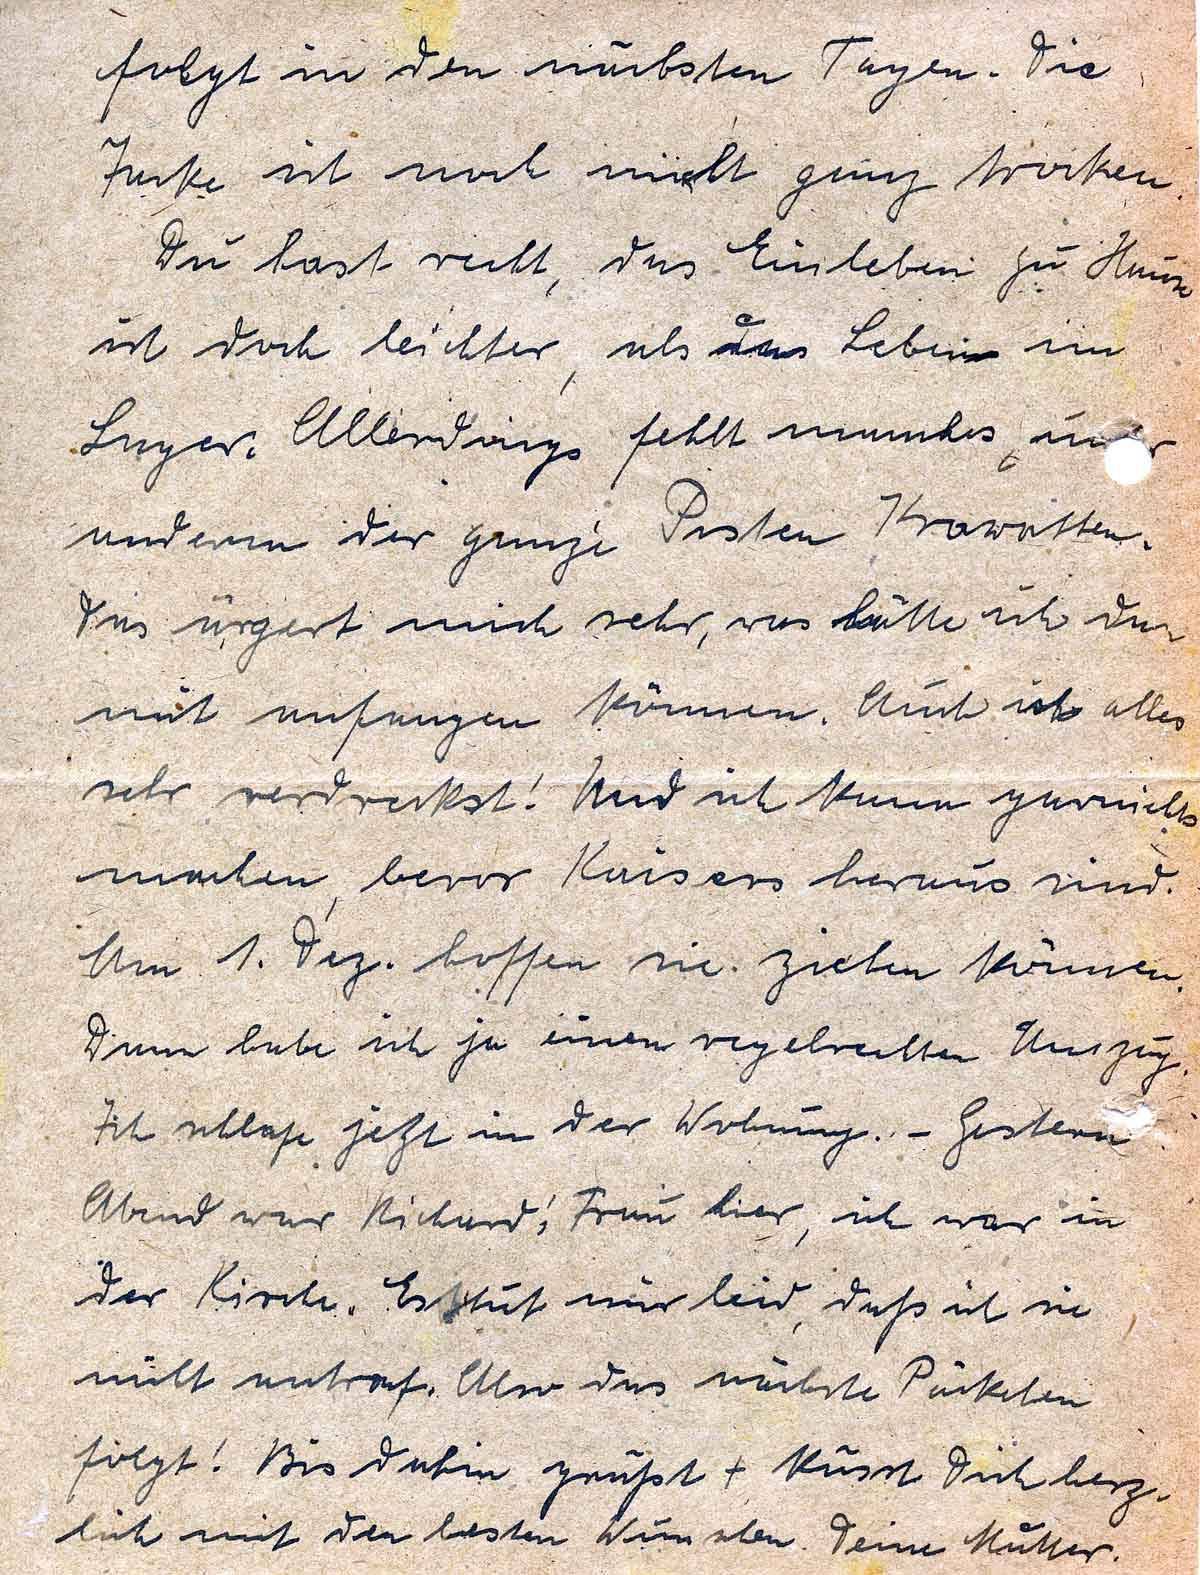 folgt in den nächsten Tagen. Die
Jacke ist noch nicht ganz trocken.
Du hast recht, das Einleben zu Hause
ist doch leichter, als das Leben im
Lager. Allerdings fehlt manches, unter
anderem der ganze Posten Krawatten.
Das ärgert mich sehr, was hätte ich da-
mit anfangen können. Auch ist alles
sehr verdreckst! Und ich kann garnichts
machen, bevor Kaisers heraus sind.
Am 1. Dez. hoffen sie ziehen können.
Dann habe ich ja einen regelrechten Umzug.
Ich schlafe jetzt in der Wohnung. - Gestern
Abend war Richard's Frau hier, ich war in
der Kirche. Es tut mir leid, daß ich sie
nicht antraf. Also das nächste Päckchen
folgt! Bis dahin grüßt + küsst Dich herz-
lich mit den besten Wünschen Deine Mutter.